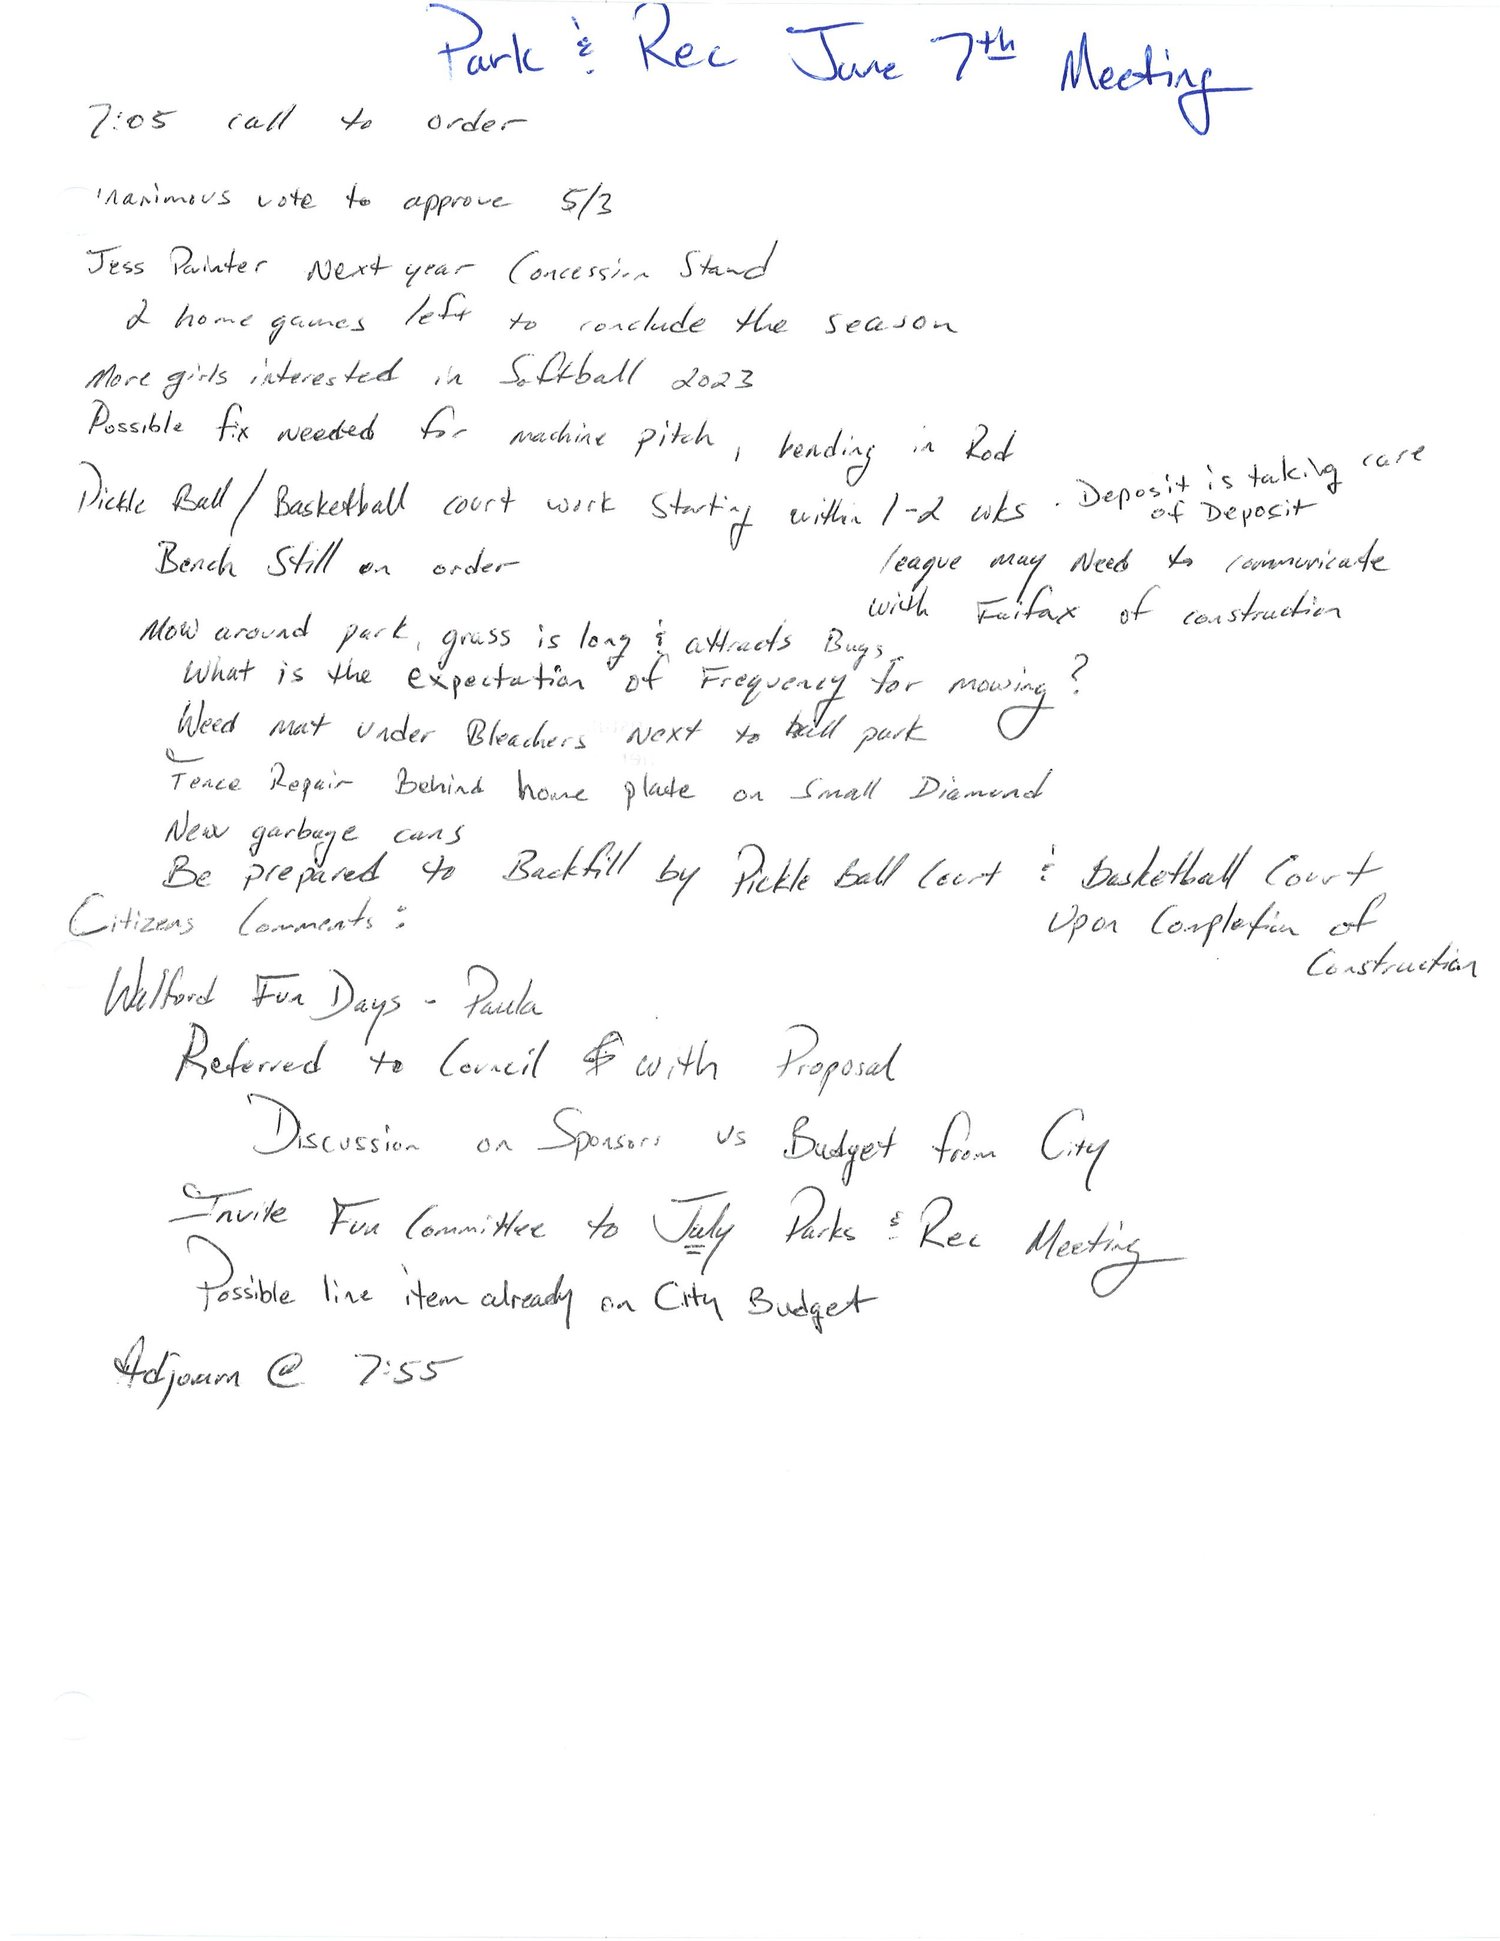 Park & Rec June 7th Meeting
7:05 call to order
unanimous vote to approve 5/3
Jess Painter Next year Concession Stand
2 home games left to conclude the season
More girls interested in Softball 2023
Possible fix needed for machine pitch, bending in Rod
Pickle Ball / Basketball court work starting within 1-2 wks. Deposit is taking care
of Deposit
Bench Still on order
league may Need to communicate
with Fairfax of construction
Mow around park, grass is long & attracts Bugs
What is the expectation of Frequency for mowing?
Weed mat under Bleachers Next to ball park
Fence Repair Behind home plate on Small Diamond
New garbage cans
Be prepared to Backfill by Pickle Ball Court & Basketball Court
Upon Completion of
Construction
Citizens Comments:
Walford Fun Days - Paula
Referred to Council $ with Proposal
Discussion on Sponsors vs Budget from City
Invite Fun Committee to July Parks & Rec Meeting
Possible line item already on City Budget
Adjourn @ 7:55